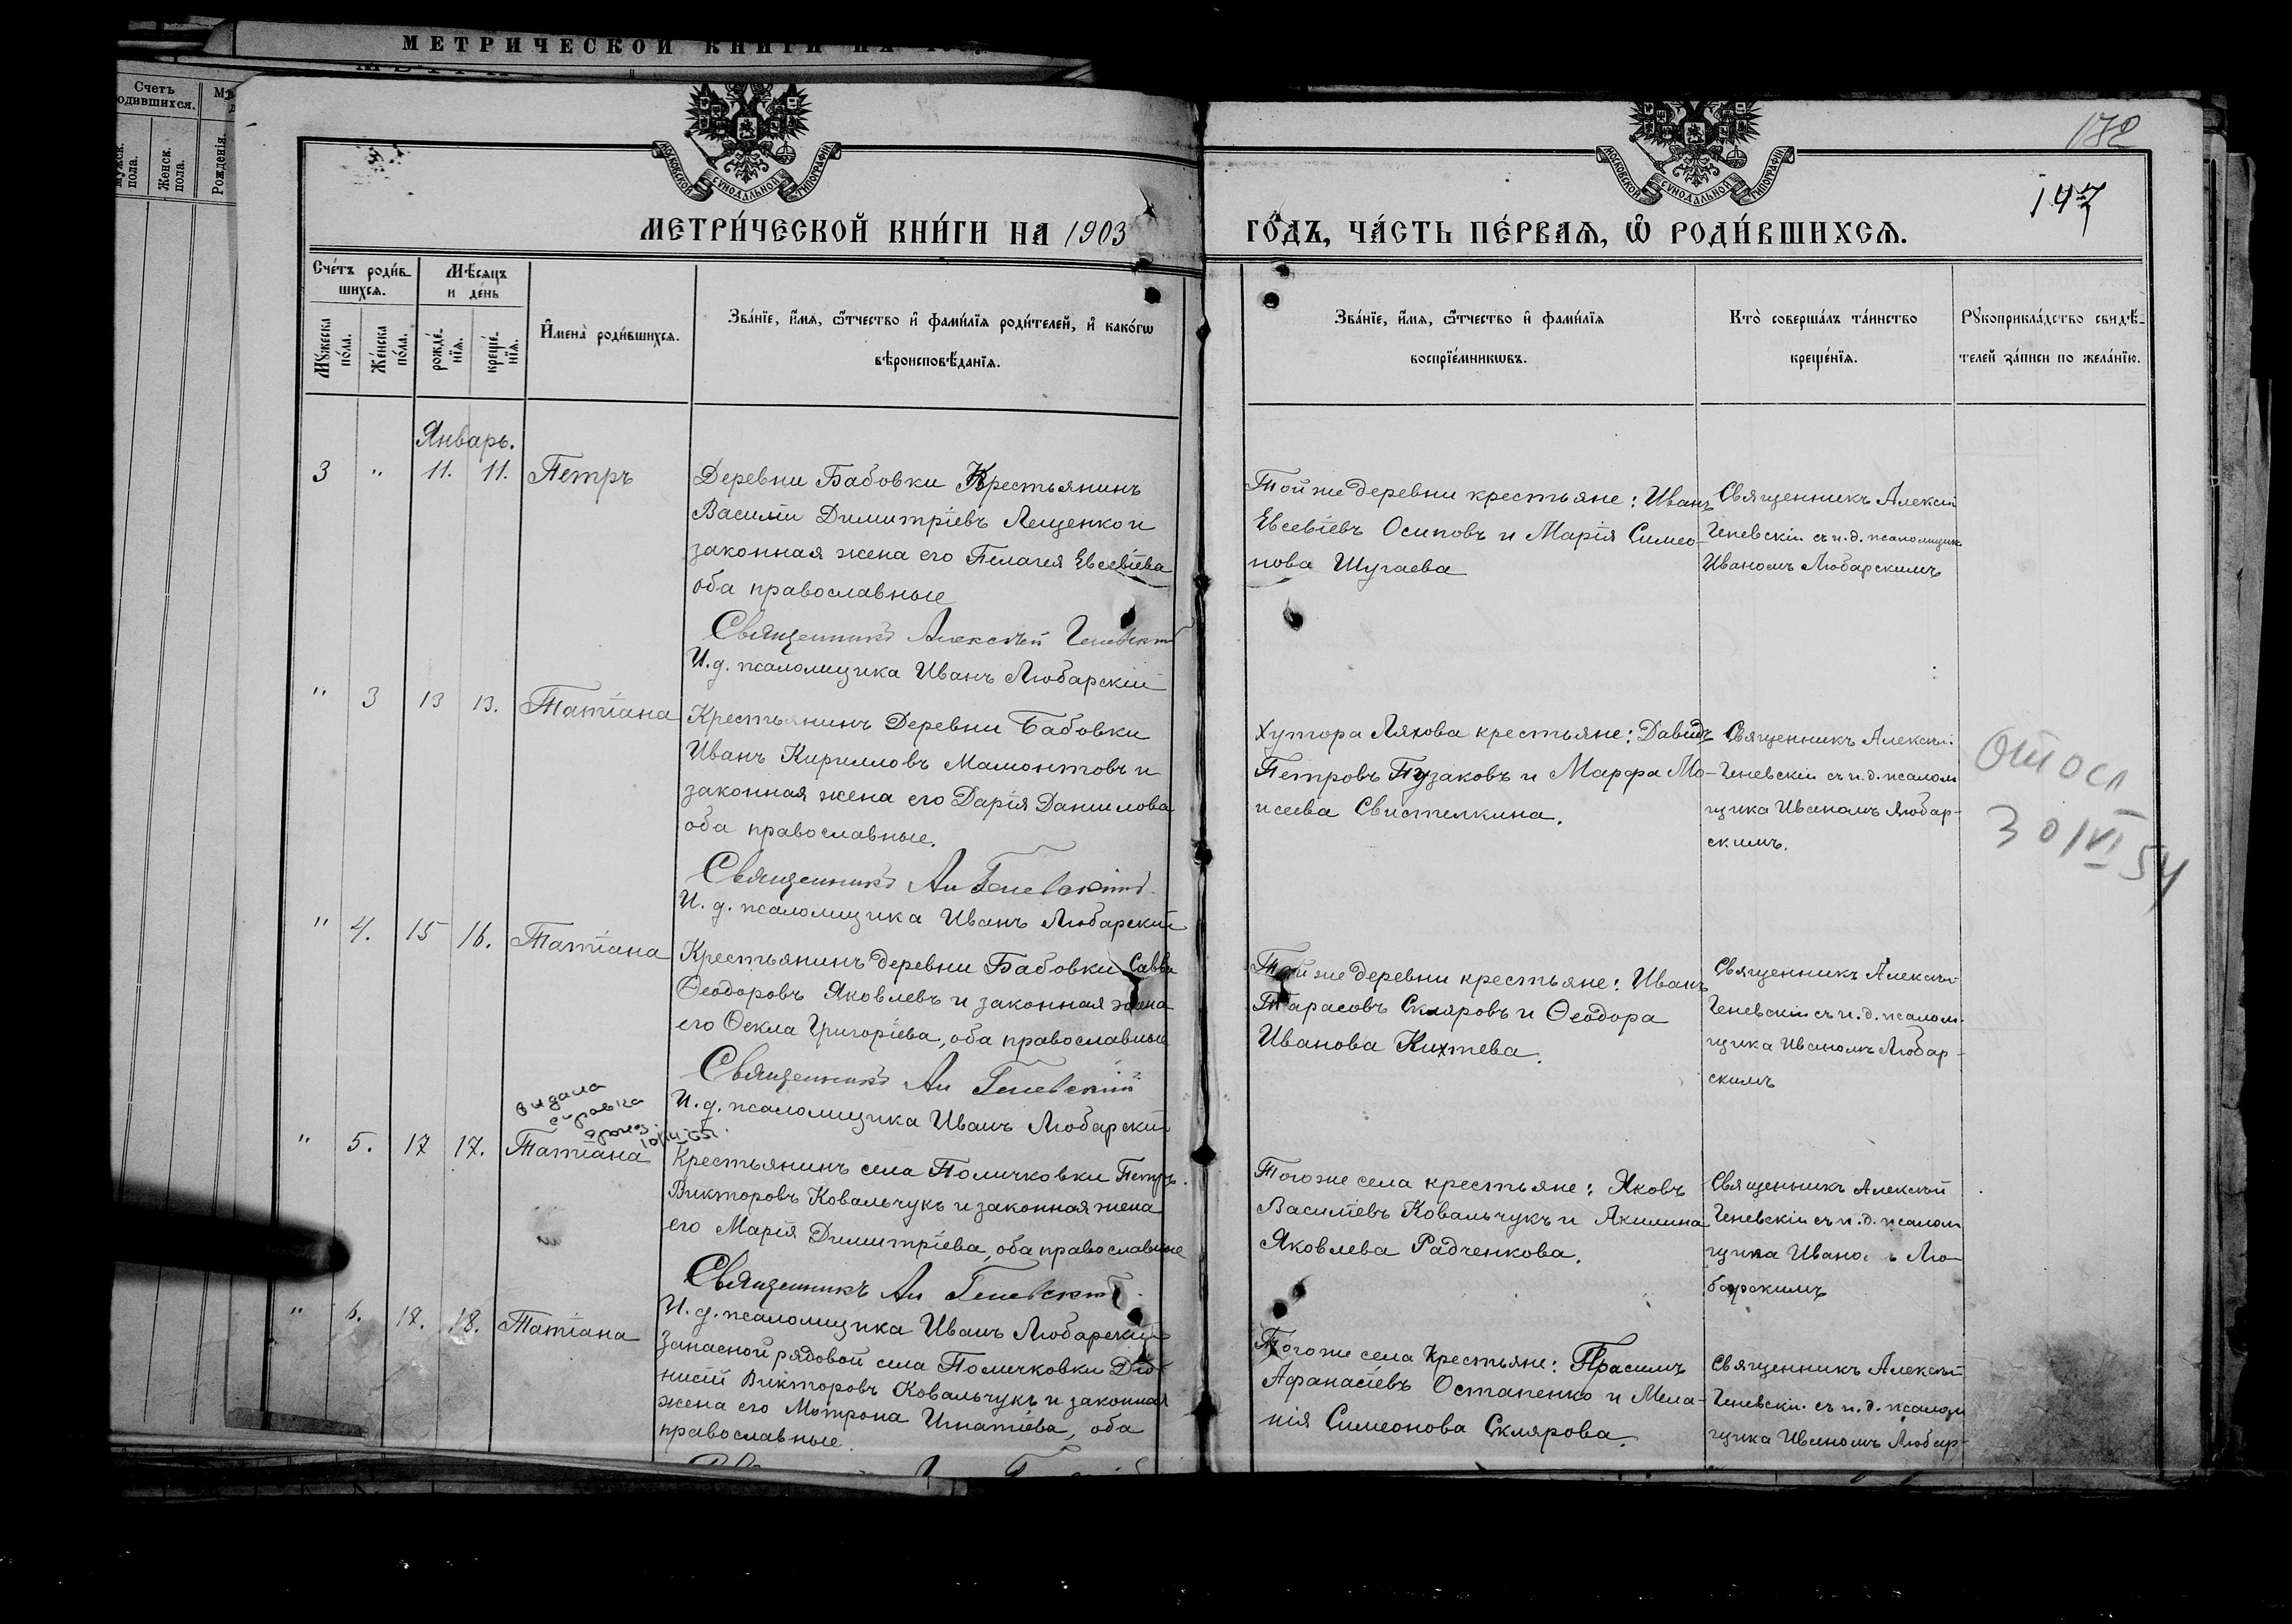 МЕТРИЧЕСКОЙ КНИГИ НА
Счетъ
одившихся.
Мужск.
пола.
Женск.
пола.
Рожденія.
МОСКОВСКОЙ СѴНОДАЛЬНОЙ ТИПОГРАФІИ
МОСКОВСКОЙ СѴНОДАЛЬНОЙ ТИПОГРАФІИ
172
147
МЕТРИ́ЧЕСКОЙ КНИ́ГИ НА 1903
ГО́ДЪ, ЧА́СТЬ ПЕ́РВАѦ, Ѡ РОДИ́ВШИХСѦ.
Сче́тъ роди́в-
шихсѧ.
Мѣ́сѧцъ
и де́нь
Мꙋ́жеска
по́ла.
Же́нска
по́ла.
рожде́-
нїѧ.
креще́-
нїѧ.
И҆мена̀ роди́вшихсѧ.
Зва́нїе, и҆́мѧ, ѻ҆́тчество и҆ фами́лїѧ роди́телей, и҆ како́гѡ
вѣроисповѣ́данїѧ.
Зва́нїе, и҆́мѧ, ѻ҆́тчество и҆ фами́лїѧ
воспрїе́мникѡвъ.
Кто̀ соверша́лъ та́инство
креще́нїѧ.
Рꙋкоприкла́дство свидѣ́-
телей за́писи по жела́нїю.
Январь.
3 " 11. 11. Петръ
Деревни Бабовки Крестьянинъ
Василій Димитріевъ Лещенко и
законная жена его Пелагея Евсевіева
оба православные
Священникъ Алексѣй Геневскій
И. д. псаломщика Иванъ Любарскій
Той же деревни крестьяне: Иванъ
Евсевіевъ Осиповъ и Марія Симео-
нова Шугаева
Священникъ Алексій
Геневскій съ и. д. псаломщик
Иваномъ Любарскимъ
" 3 13 13. Татіана
Крестьянинъ Деревни Бабовки
Иванъ Кирилловъ Мамонтовъ и
законная жена его Дарія Данилова
оба православные.
Священникъ Ал Геневскій
И. д. псаломщика Иванъ Любарскій
Хутора Ляхова крестьяне: Давидъ
Петровъ Пузаковъ и Марфа Мо-
исеева Свистелкина.
Священникъ Алексѣй
Геневскій съ и. д. псалом
щика Иваномъ Любар-
скимъ.
30/VI 54
" 4. 15 16. Татіана
Крестьянинъ деревни Бабовки Савва
Ѳеодоровъ Яковлевъ и законная жена
его Ѳекла Григоріева, оба православные
Священникъ Ал Геневскій
И. д. псаломщика Иванъ Любарскій
Той же деревни крестьяне: Иванъ
Тарасовъ Скляровъ и Ѳеодора
Иванова Кихтева.
Священникъ Алексѣй
Геневскій съ и. д. псалом-
щика Иваномъ Любар-
скимъ
видана
справка
" 5. 17 17. Татіана
Крестьянинъ села Поличковки Петръ
Викторовъ Ковальчукъ и законная жена
его Марія Димитріева, оба православные
Священникъ Ал Геневскій
И. д. псаломщика Иванъ Любарскій
Того же села крестьяне: Яковъ
Василіевъ Ковальчукъ и Акилина
Яковлева Радченкова.
Священникъ Алексѣй
Геневскій съ и. д. псалом
щика Ивано ъ Лю-
барскимъ
" 6. 18. 18. Татіана
Запасной рядовой села Поличковки Діо-
нисій Викторовъ Ковальчукъ и законная
жена его Мотрона Игнатіева, оба
православные.
Того же села Крестьяне: Герасимъ
Афанасіевъ Остапенко и Мела-
нія Симеонова Склярова.
Священникъ Алексѣй
Геневскій съ и. д. псалом
щика Иваномъ Любар-